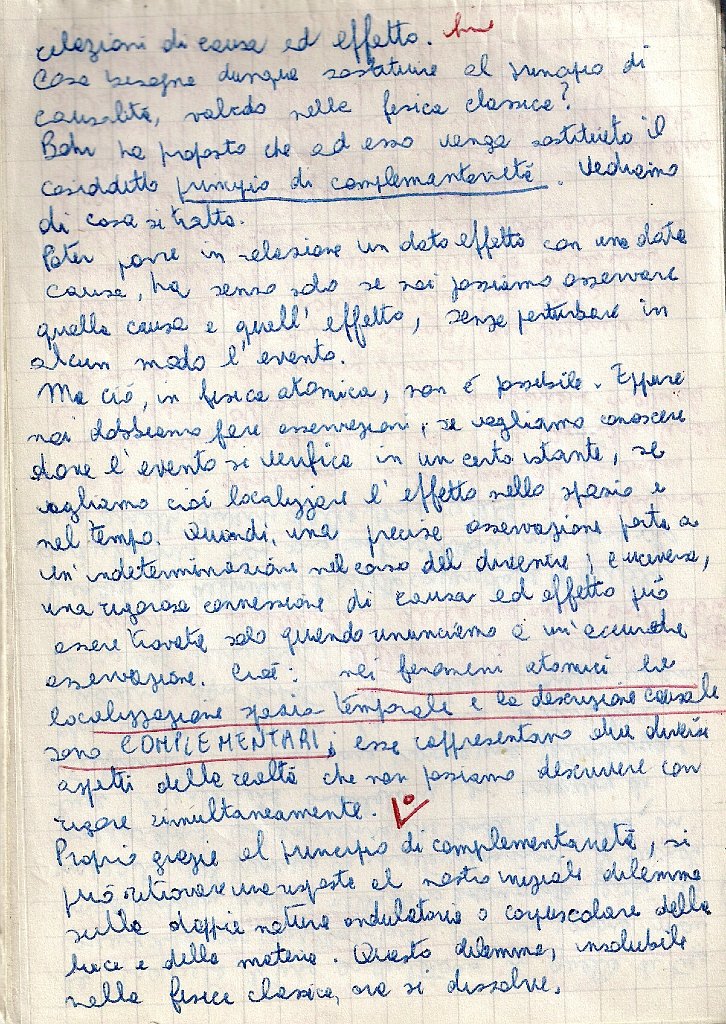 relazioni di causa ed effetto. fine
Cosa bisogna dunque sostituire al principio di
causalità, valido nella fisica classica?
Bohr ha proposto che ad esso venga sostituito il
cosiddetto principio di complementarietà. Vediamo
di cosa si tratta.
Poter porre in relazione un dato effetto con una data
causa, ha senso solo se noi possiamo osservare
quella causa e quell'effetto, senza perturbare in
alcun modo l'evento.
Ma ciò, in fisica atomica, non è possibile. Eppure
noi dobbiamo fare osservazioni, se vogliamo conoscere
dove l'evento si verifica in un certo istante, se
vogliamo cioè localizzare l'effetto nello spazio e
nel tempo. Quindi, una precisa osservazione porta a
un'indeterminazione nel corso del divenire; e viceversa,
una rigorosa connessione di causa ed effetto può
essere trovata solo quando rinunciamo a un'accurata
osservazione. Cioè: nei fenomeni atomici la
localizzazione spazio temporale e la descrizione causale
sono COMPLEMENTARI; esse rappresentano due diversi
aspetti della realtà che non possiamo descrivere con
rigore simultaneamente.
Proprio grazie al principio di complementarietà, si
può ritrovare una risposta al nostro iniziale dilemma
sulla doppia natura ondulatoria o corpuscolare della
luce e della materia. Questo dilemma, insolubile
nella fisica classica, ora si dissolve.